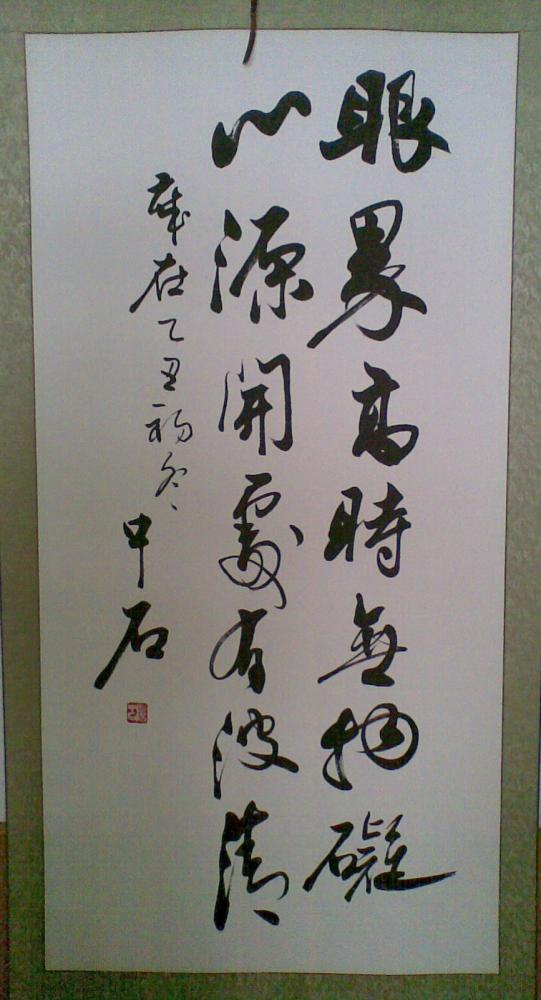 眼界高時無物礙
心源開處有波清
歲在乙丑初冬 中石